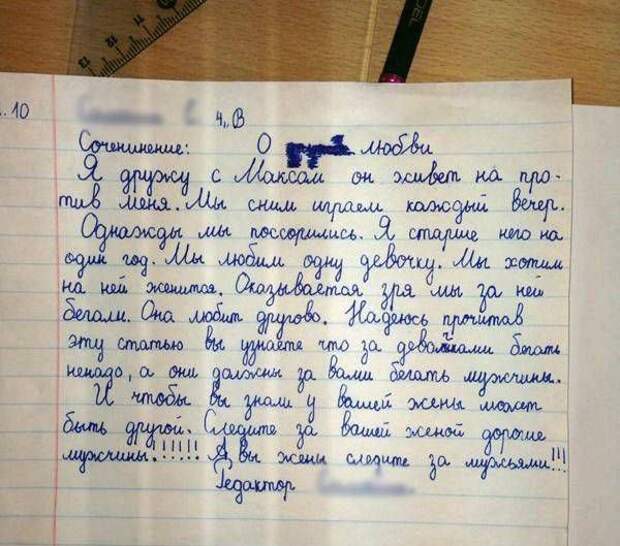 .. 10
4 „В
Соченинение: О любви
Я дружу с Максом он живет на про-
тив меня. Мы сним играем каждый вечер.
Однажды мы поссорились. Я старше него на
один год. Мы любим одну девочку. Мы хотим
на ней женится. Оказывается зря мы за ней
бегали. Она любит другово. Надеюсь прочитав
эту статью вы узнаете что за девачками бегать
ненадо, а они должны за вами бегать мужчины.
И чтобы вы знали у вашей жены может
быть другой. Следите за вашей женой дорогие
мужчины!!!!!! А вы жены следите за мужьями!!!
Редактор